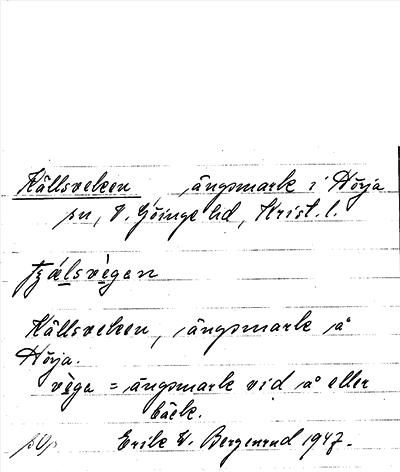 Källsveken ängsmark i Hörja
sn, V. Göinge hd, Krist. l.
tjälsvegan
Källsveken, ängsmark å
Hörja.
vega = ängsmark vid å eller
bäck.
Erik V. Bergenrud 1947.